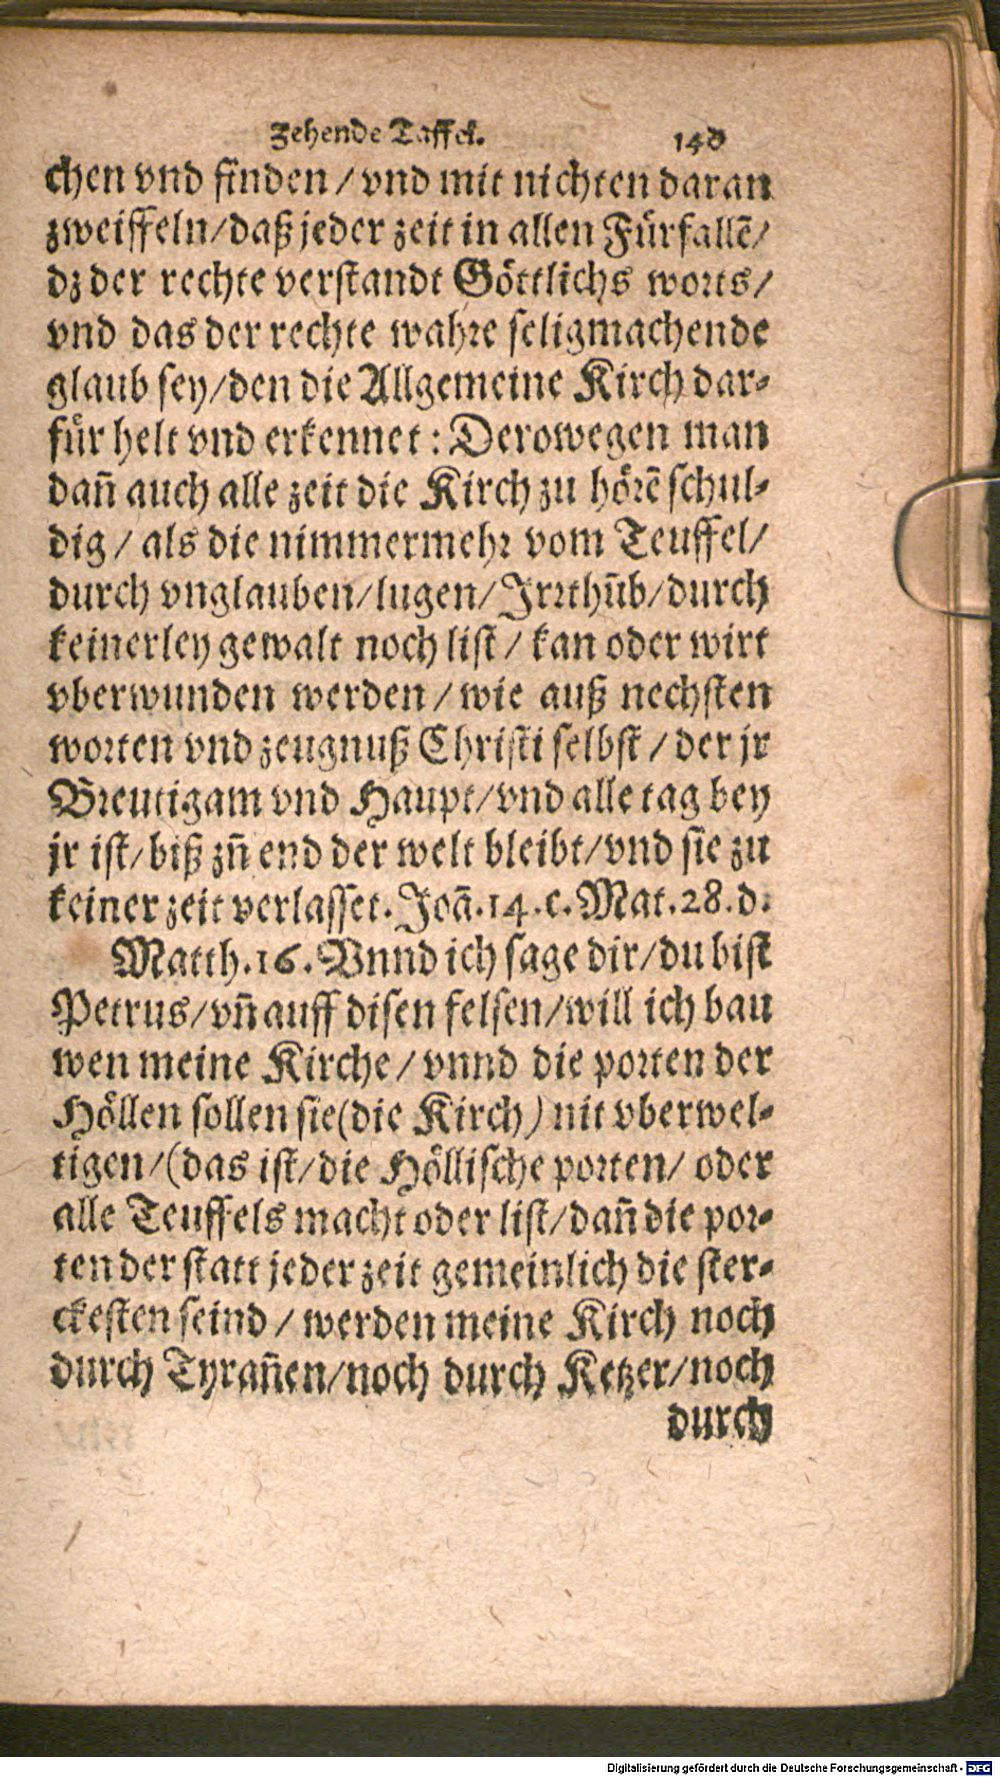 Zehende Taffel.
chen vnd finden / vnd mit nichten daran
zweiffeln/daß jeder zeit in allen Fürfallẽ/
dz der rechte verstandt Göttlichs worts/
vnd das der rechte wahre seligmachende
glaub sey/den die Allgemeine Kirch dar-
für helt vnd erkennet : Derowegen man
dañ auch alle zeit die Kirch zu hörẽ schul-
dig / als die nimmermehr vom Teuffel/
durch vnglauben/lugen/Irrthũb/durch
keinerley gewalt noch list / kan oder wirt
vberwunden werden / wie auß nechsten
worten vnd zeugnuß Christi selbst / der jr
Breutigam vnd Haupt/vnd alle tag bey
jr ist/biß zũ end der welt bleibt/vnd sie zu
keiner zeit verlasset. Joã.14.c.Mat.28.d.
Matth.16. Vnnd ich sage dir/du bist
Petrus/vñ auff disen felsen/will ich bau
wen meine Kirche / vnnd die porten der
Höllen sollen sie(die Kirch) nit vberwel-
tigen/(das ist/die Höllische porten/ oder
alle Teuffels macht oder list/dañ die por-
ten der statt jeder zeit gemeinlich die ster-
ckesten seind / werden meine Kirch noch
durch Tyrañen/noch durch Ketzer/noch
durch
Digitalisierung gefördert durch die Deutsche Forschungsgemeinschaft - DFG